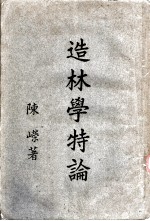 造林學特論
陳嶸著